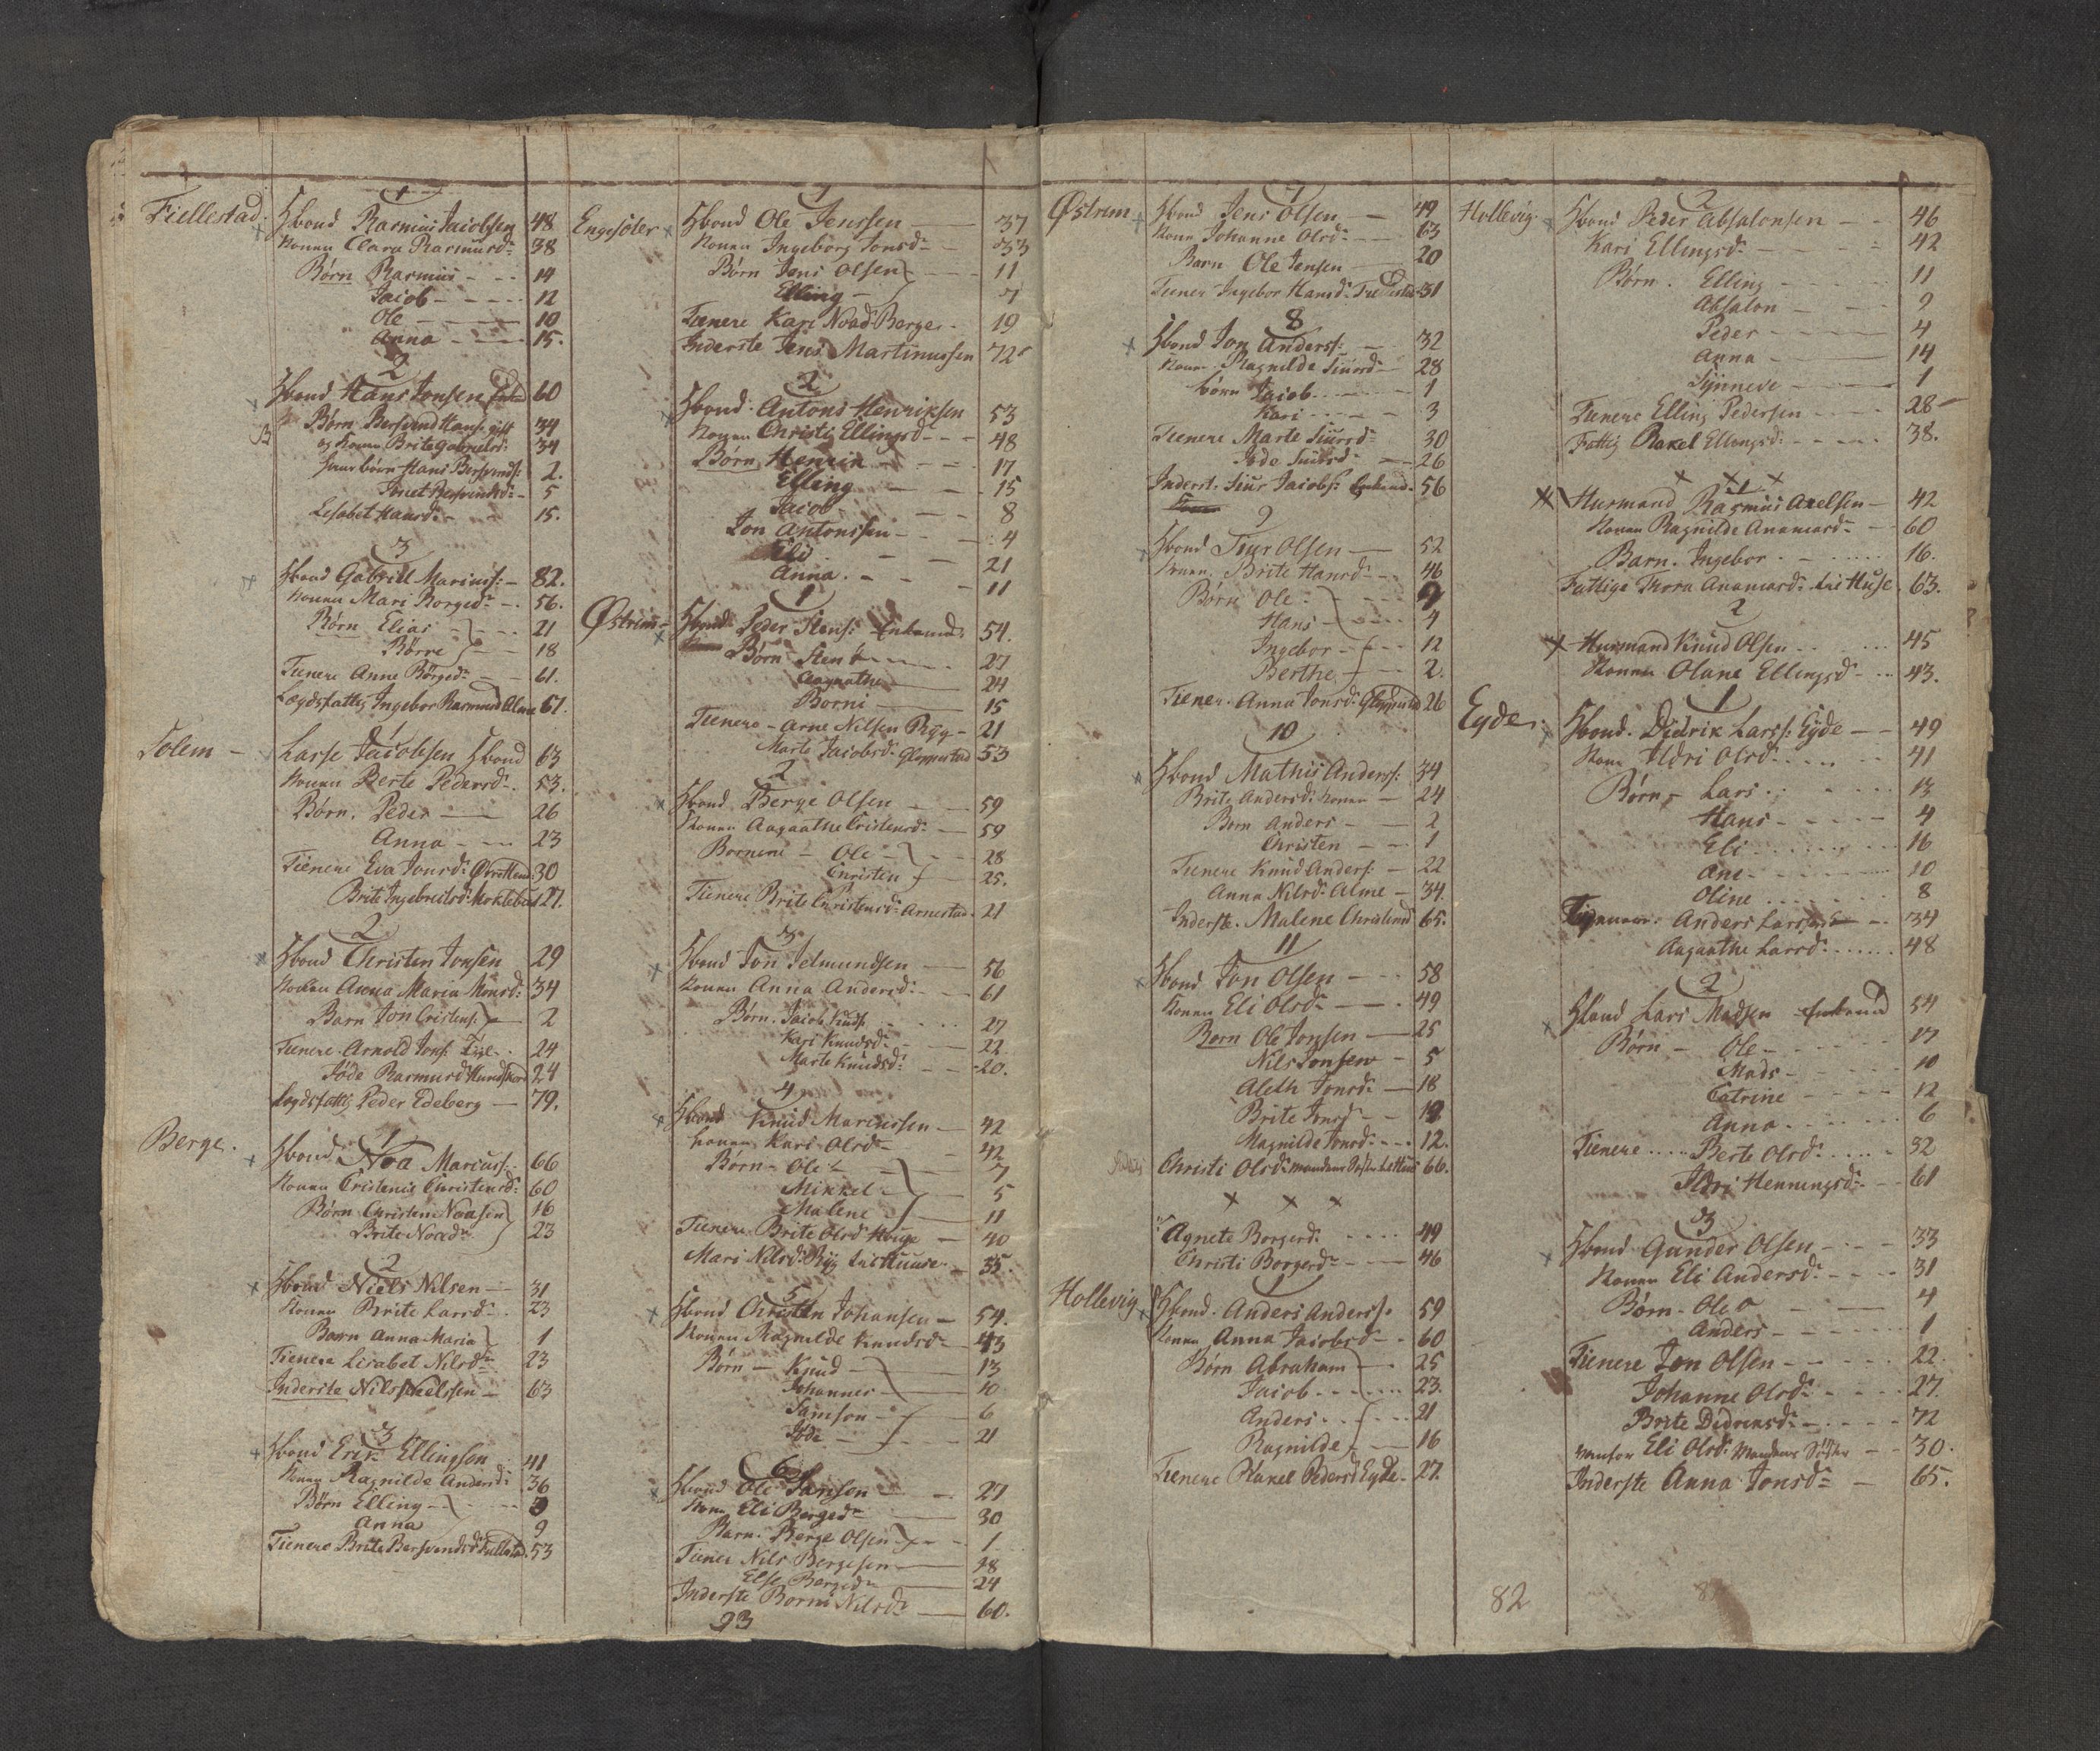 Fiellestad.
1
Hbond Rasmus Jacobsen 48
Konen Clara Rasmusd: 38
Børn Rasmus - - - 14
Jacob - - - - - 12
Ole - - - 10
Anna - - - 15.
2
Hbond Hans Jonsen 60
Børn Bersvend Hans: gift 34
og Konen Brite Gabrielsd: 34
Hans Bersvends: 2.
Bersvendsd: - 5
Lisabet Hansd: - 15.
3
Hbond Gabriel Marius: - 82.
Konen Mari Borged: - 56.
Børn Elias - - - 21
Børre - - 18
Tienere Anne Børged: - 61.
Lægdsfattig Ingebor Rasmusd Alme 61.
Solem -
1
Larse Jacobsen Hbond 63
Konen Berte Pedersd: 53.
Børn. Peder - 26
Anna - - - 23
Tienere Eva Jonsd: 30
Brite Ingebretsd: 27.
2
Hbond Christen Jonsen 29
Konen Anna Maria Monsd: 34
Barn Jon Cristens: 2
Tienere. Arnold Jons: - 24
Jøde Rasmusd 24
Lægdsfattig Peder Edeberg - 79.
Berge.
1
Hbond Noa Marius: 66
Konen Cristense Christensd: 60
Børn Christen Noasen 16
Brite Noad: 23
2
Hbond Niels Nilsen - 31
Konen Brite Larsd: 23
Barn Anna Maria 1
Tienere Lisabet Nilsd: 23
Inderste Nils Nielssen - 63
3
Hbond Erik Ellingsen 41
Konen Ragnilde Andersd: 36
Børn Elling - - -
Anna 9
Tienere Brite Bersvendsd 53
Engesøter
1
Hbond Ole Jenssen 37
Konen Ingeborg Jonsd: - 33
Børn Jens Olsen - - - 11
Elling - 7
Tienere Kari Noad: Berge - 19
Inderste Jens Martinussen 72
2
Hbond. Antons Henriksen 53
Konen Christi Ellingsd - - - 48
Børn Henrik - - - 17
Elling - - 15
Jacob - - 8
Jon Antonssen - - 4
- - 21
Anna. - - - 11
Østrim -
1
Hbond Peder Stens: Enkemand: 54.
Børn Sten - - - 27
Aagaathe - 24
Borni - 15
Tienere - Arne Nilsen Ryg - 21
Marte Jacobsd: Gloppestad 53
2
Hbond Berge Olsen - - 59
Konen Aagaathe Cristensd: - 59
Børnene - Ole - - - 28
Christen - 25.
Tienere Brite Christensd: Arnestad. 21
3
Hbond Jon Jetmundsen - 56
Konen Anna Andersd: - 61
Børn. Jacob Knuds: - - - 27
Kari Knudsd: - 22
Marte Knudsd: - - 20.
4
Hbond Knud Mariussen - 42
Konen Kari Olsd: - 42
Børn - Ole - 7
Mikkel - 5
Malene 11
Tienere Brite Olsd Houge - 40
Mari Nilsd: Ryg 35.
5
Hbond Christen Johansen - 54.
Konen Ragnilde Knudsd - 43
Børn - Knud - 13
Johannes - 10
Samson - 6
Jøde - 21
6
Hbond Ole Samson - - 27
Konen Eli Berged: - 30
Barn. Berge Olsen - 1
Tiener Nils Bergesen - 18
Else Berged: - 24
Inderste Borni Nilsd: - 60.
93
Østrem
7
Hbond Jens Olsen - - 49
Konen Johanne Olsd: - - 63
Barn Ole Jensen - 20
Tiener Ingebor Hansd: 31
8
Hbond Jon Anderss: - 32
Konen Ragnilde Siursd - 28
børn Jacob - - - 1
Kari - - - - 3
Tienere Marte Siursd: 30
Jøde Siursd: - 26
Inderst. Siur Jacobs: Enkemd. 56
9
Hbond Siur Olsen - 52
Konen Brite Hansd: - 46
Børn Ole - - -
Hans - - - - 4
Ingebor - - - 12
Berthe - 2.
Tiener. Anna Jonsd: 26
10
Hbond Mathis Anderss: 34
Brite Andersd: konen - 24
Børn Anders - - 2
Christen - - 1
Tienere Knud Anders: - 22
Anna Nilsd: Alme - 34.
Inderste. Malene Christensd 65.
11
Hbond Jon Olsen - - - 58
Konen Eli Olsd: - 49
Børn Ole Jonsen - 25
Nils Jonsen - 5
Aleth Jonsd: - 18
Brite Jonsd: - -
Magnilde Jonsd: - - 12.
Christi Olsd: mandens Søster 66.
x x x
Agnete Borgerd: - - - - 49
Christi Borgerd: - - 46
Hollevig
1
Hbond. Anders Anderss. 59
Konen Anna Jacobsd - - 60
Børn Abraham - - 25
Jacob - - - - 23.
Anders - - - - 21
Ragnilde - 16
Tienere Rakel Pedersd Eyde - 27.
Hollevig.
2
Hbond Peder Absalonsen - - 46
Kari Ellingsd: - - - - 42
Børn. Elling - - - 11
Absalon - - - 9
Peder - - - - 4
Anna - - 14
Synneve - - 1
Tienere Elling Pedersen - - - - 28
Fattig Rakel Ellingsd: - - - - - 38.
x x x
1
Husmand Rasmus Axelsen - 42
Konen Ragnilde Ananiasd: - - 60
Barn. Ingebor. - - - - 16.
Fattige Thora Ananiasd: 63.
2
Husmand Knud Olsen - - - - 45
Konen Olane Ellingsd: - - - 43.
Eyde.
1
Hbond. Didrik Larss: Eyde - - 49
Konen Ildri Olsd: - - - - 41
Børn - Lars. - - - - 13
Hans - - - - 4
Eli - - - - 16
Ane - - - - 10
Oline - - - - 8
Anders Larssen - - 34
Aagaathe Larsd: - - - - 48
2
Hbond Lars Madsen Enkemd 54
Børn - Ole - - - - 17
Mads - - - - 10
Catrine - - - - 12
Anna - - - - 6
Tienere - - - - Berte Olsd: - - - - 32
Ildri Henningsd: - - 61
3
Hbond Gunder Olsen - - - 33
Konen Eli Andersd: - - - 31
Børn - Ole - - 4
Anders - - - - 1
Tienere Jon Olsen - - - - 22
Johanne Olsd: - - - - 27.
Berte Didriksd: - - - - 72
Eli Olsd: Mandens Søster - - 30.
Inderste Anna Jonsd: - 65.
82